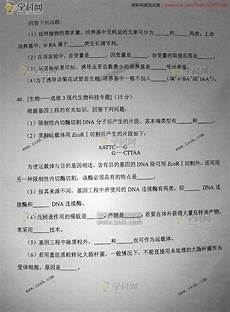 学科网
回答下列问题：
(1) 按照植物的需求量，培养基中无机盐的元素可分为______和______两类。上述
培养基中，6-BA 属于______类生长调节剂。
(2) 在该实验中，自变量是______，因变量是______，自变量的取值范围是______。
(3) 从实验结果可知，诱导丛芽总数最少的培养基是______
40. [生物——选修 3 现代生物科技专题] (15 分)
根据基因工程的有关知识，回答下列问题：
(1) 限制性内切酶切割 DNA 分子后产生的片段，其末端类型有______和______。
(2) 质粒运载体用 EcoR I 切割后产生的片段如下：
AATTC……G
G……CTTAA
为使运载体与目的基因相连，含有目的基因的 DNA 除可用 EcoR I 切割外，还可用
另一种限制性内切酶切割，该酶必须具有的特点是______。
(3) 按其来源不同，基因工程中所使用的 DNA 连接酶有两类，即______DNA 连
接酶和______DNA 连接酶。
(4) 反转录作用的模板是______，产物是______。若要在体外获得大量反转录产物，
常采用______技术。
(5) 基因工程中除质粒外，______和______也可作为运载体。
(6) 若用重组质粒转化大肠杆菌，一般情况下，不能直接用未处理的大肠杆菌作为
受体细胞，原因是______。
www.zxxk.com
学科网